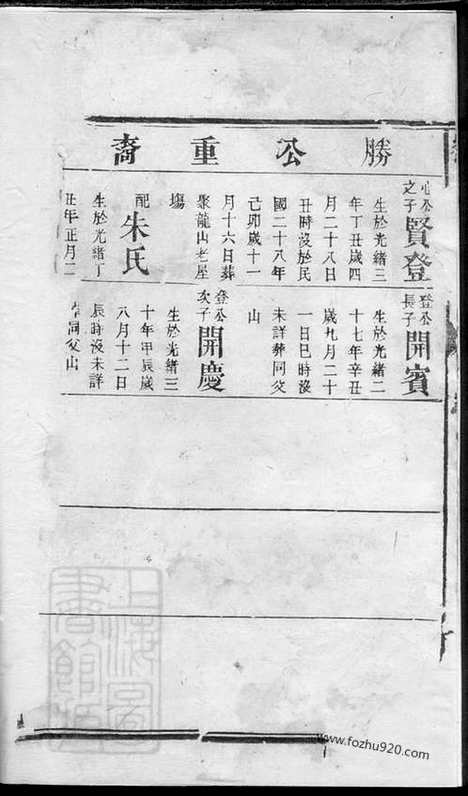 勝公重裔
心公之子
賢登
生於光緒三
年丁丑歲四
月二十八日
丑時沒於民
國二十八年
己卯歲十一
月十六日葬
聚龍山老屋
塲
配朱氏
生於光緒丁
丑年正月二
登公長子
開賓
生於光緒二
十七年辛丑
歲九月二十
一日巳時沒
未詳葬同父
山
登公次子
開慶
生於光緒三
十年甲辰歲
八月十二日
辰時沒未詳
葬同父山
上海圖書館藏
www.fozhu920.com